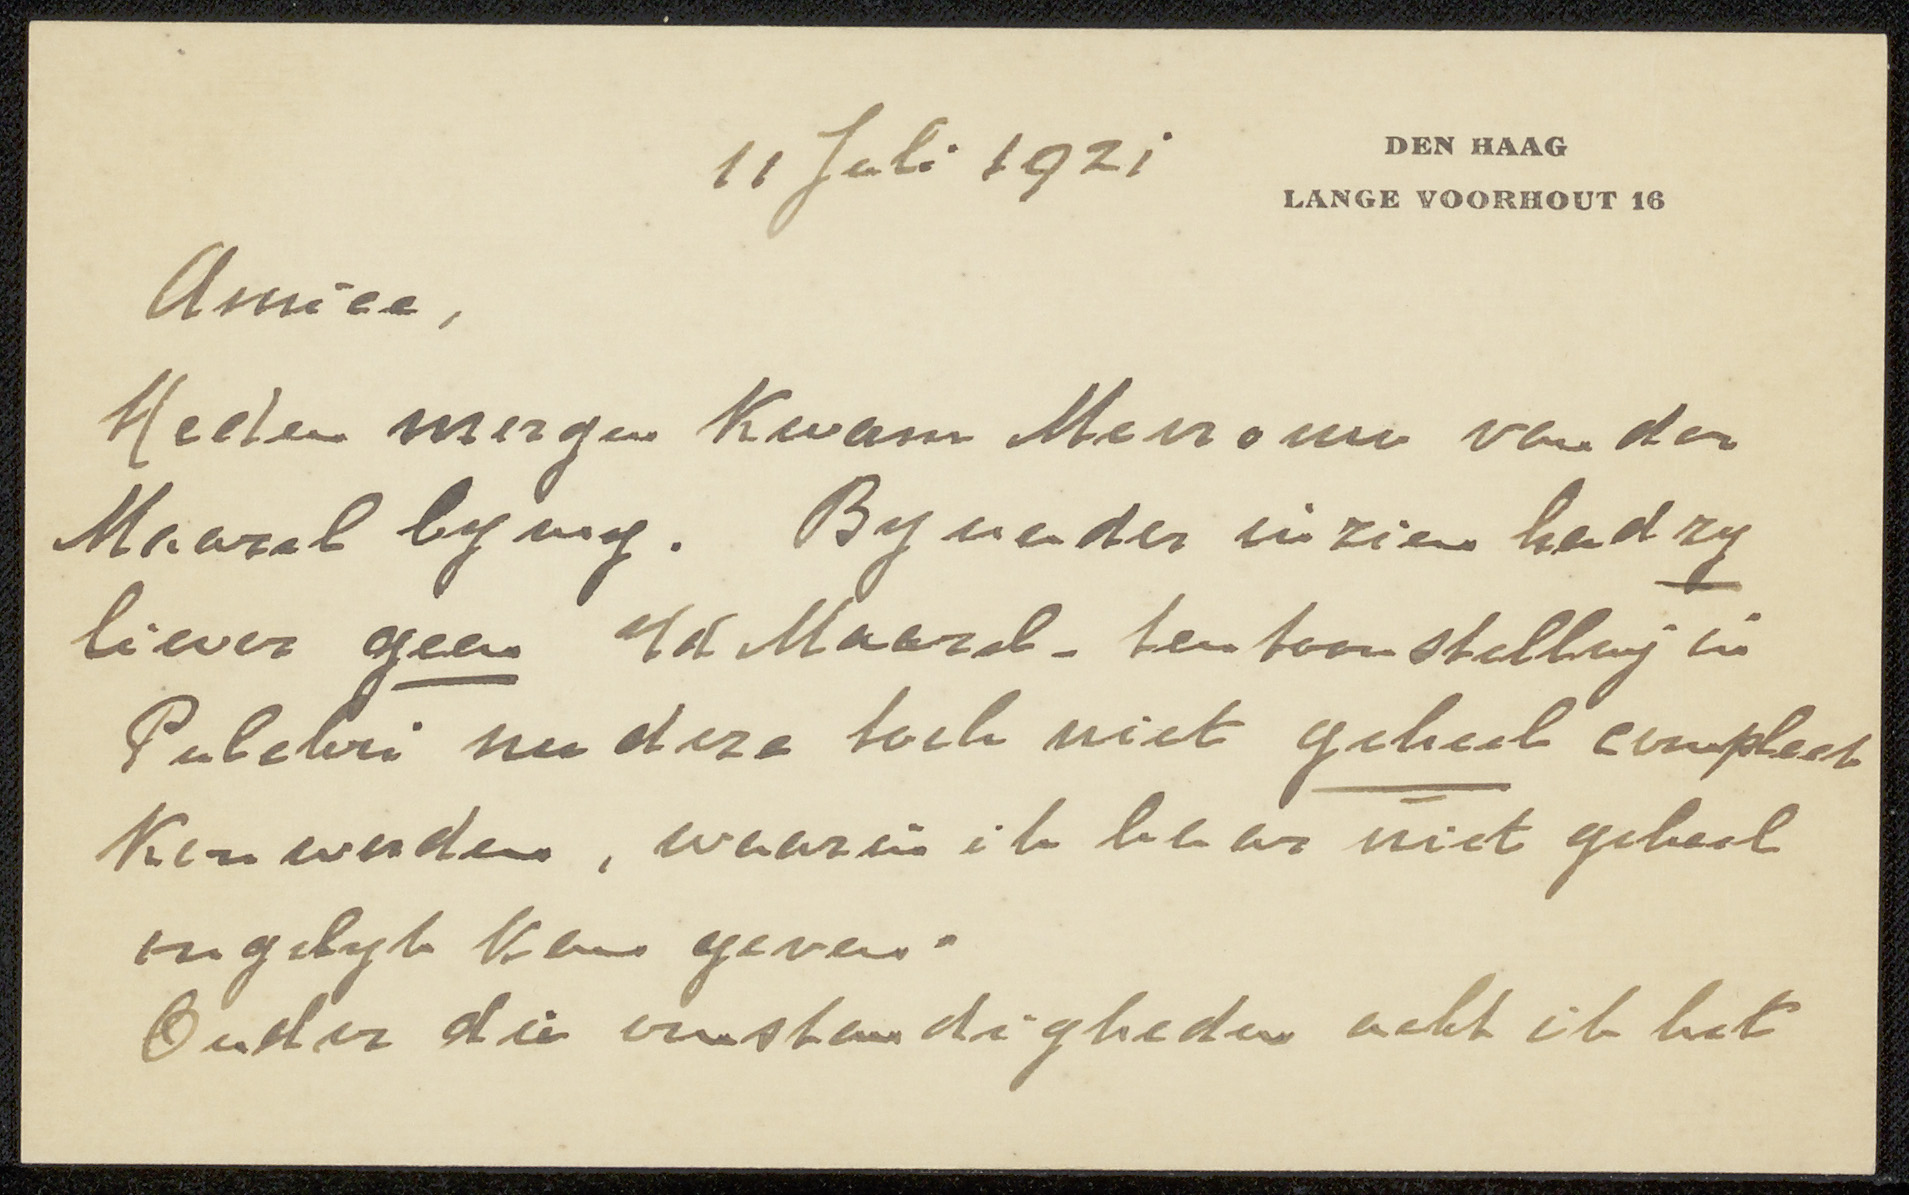 11 Juli 1921
DEN HAAG
LANGE VOORHOUT 16
Amice,
Heden morgen kwam Mevrouw van der
Maarel by my. By nader inzien had zy
liever geen v/d Maarel-tentoonstelling in
Pulchri nu deze toch niet geheel compleet
kon worden, waarin ik haar niet geheel
ongelyk kan geven.
Onder die omstandigheden acht ik het